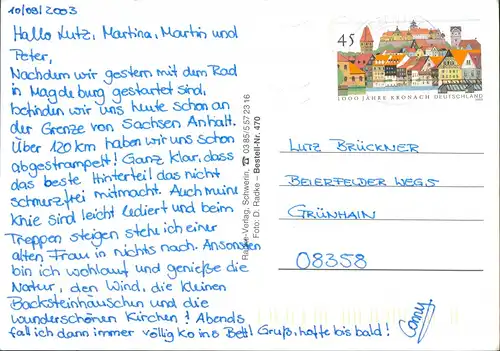 10/09/2003
Hallo Lutz, Martina, Martin und
Peter,
Nachdem wir gestern mit dem Rad
in Magdeburg gestartet sind,
befinden wir uns heute schon an
der Grenze von Sachsen Anhalt.
Über 120 km haben wir uns schon
abgestrampelt! Ganz klar, dass
das beste Hinterteil das nicht
schmerzfrei mitmacht. Auch meine
Knie sind leicht lediert und beim
Treppen steigen stehe ich einer
alten Frau in nichts nach. Ansonsten
bin ich wohlauf und genieße die
Natur, den Wind, die kleinen
Backsteinhäuschen und die
wunderschönen Kirchen! Abends
fall ich dann immer völlig ko ins Bett! Gruß, hoffe bis bald!
Conny
Radke-Verlag, Schwerin, ☎ 0385/5572316
Foto: D. Radke – Bestell-Nr. 470
45
1000 JAHRE KRONACH DEUTSCHLAND
LUTZ BRÜCKNER
BEIERFELDER WEG 5
GRÜNHAIN
08358